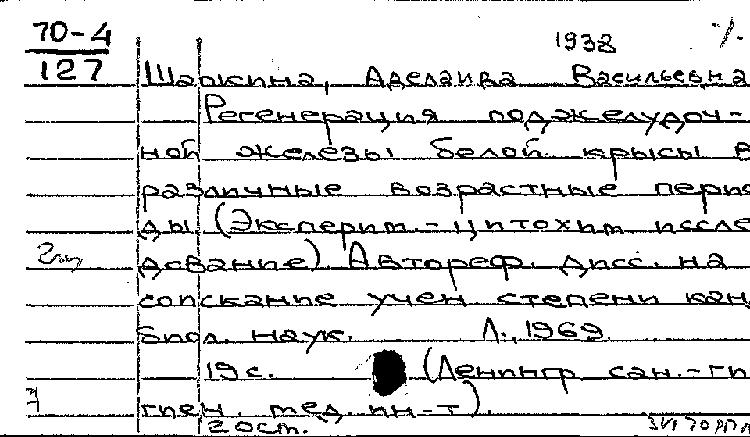 70-4
127
1938
Шаркина, Аделаида Васильевна
Регенерация поджелудоч-
ной железы белой крысы в
различные возрастные перио
ды (Эксперим.-цитохим иссле
дование) Автореф. дисс. на
соискание учен степени кан
биол. наук. Л., 1969
19 с. (Ленингр сан.-ги
гиен. мед. ин-т).
2 ост.